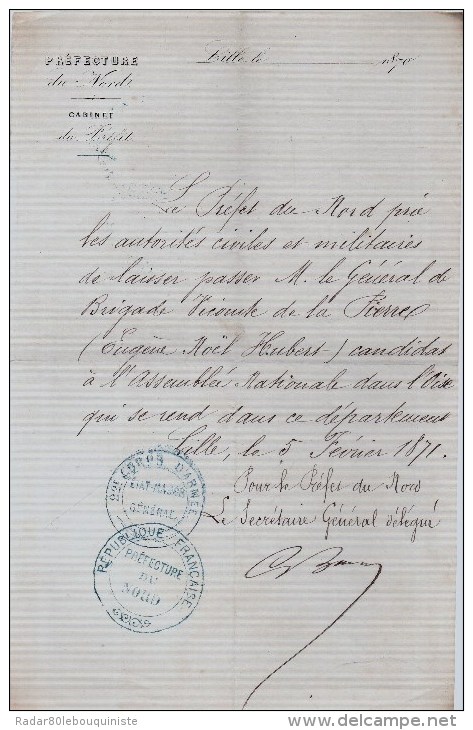 PRÉFECTURE
du Nord
CABINET
du Préfet
Lille, le 187
Le Préfet du Nord prie
les autorités civiles et militaires
de laisser passer M. le Général de
Brigade Vicomte de la Pierre
(Eugène Noël Hubert) candidat
à l'Assemblée Nationale dans l'Oise
qui se rend dans ce département
Lille, le 5 Février 1871.
Pour le Préfet du Nord
Le Secrétaire Général délégué
22E CORPS D'ARMÉE
ETAT-MAJOR
GÉNÉRAL
RÉPUBLIQUE FRANÇAISE
PRÉFECTURE
DU
NORD
Radar80lebouquiniste
www.delcampe.net